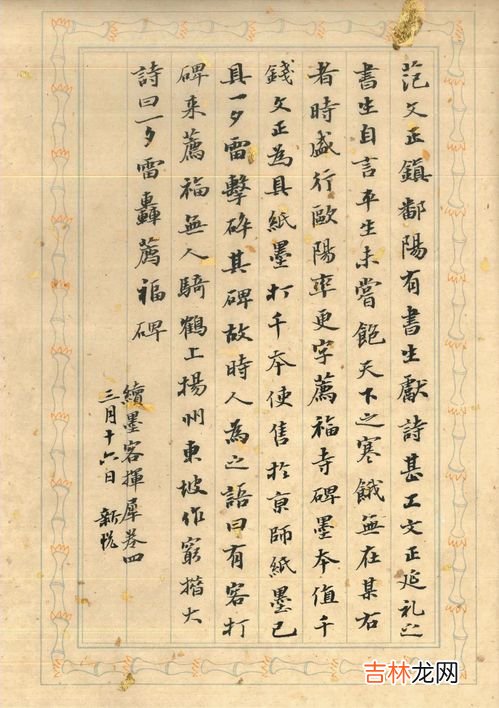 范文正鎮鄱陽有書生獻詩甚工文正延礼之
書生自言平生未嘗飽天下之寒餓無在某右
者時盛行歐陽率更字薦福寺碑墨本值千
錢文正為具紙墨打千本使售於京師紙墨已
具一夕雷擊碎其碑故時人為之語曰有客打
碑来薦福無人騎鶴上揚州東坡作窮措大
詩曰一夕雷轟薦福碑
續墨客揮犀卷四
三月十六日 新
吉林龙网